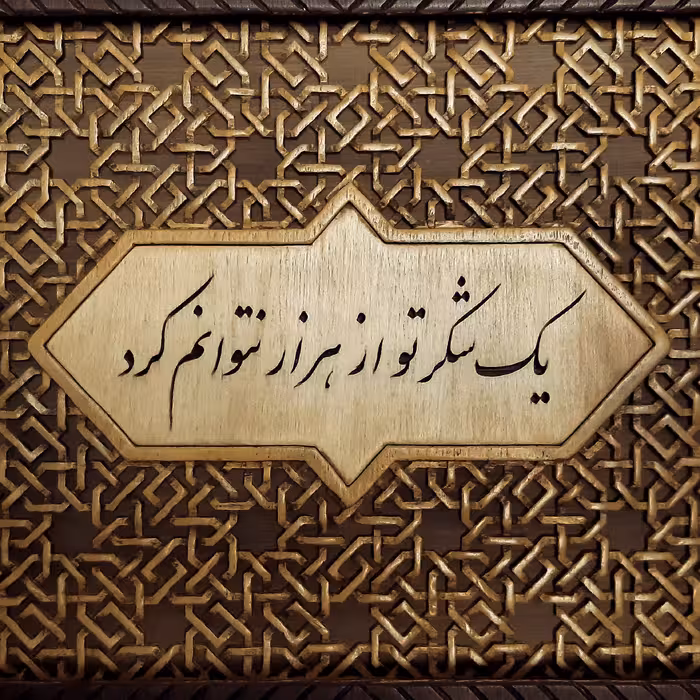 یک شکر تو از هزار نتوانم کرد